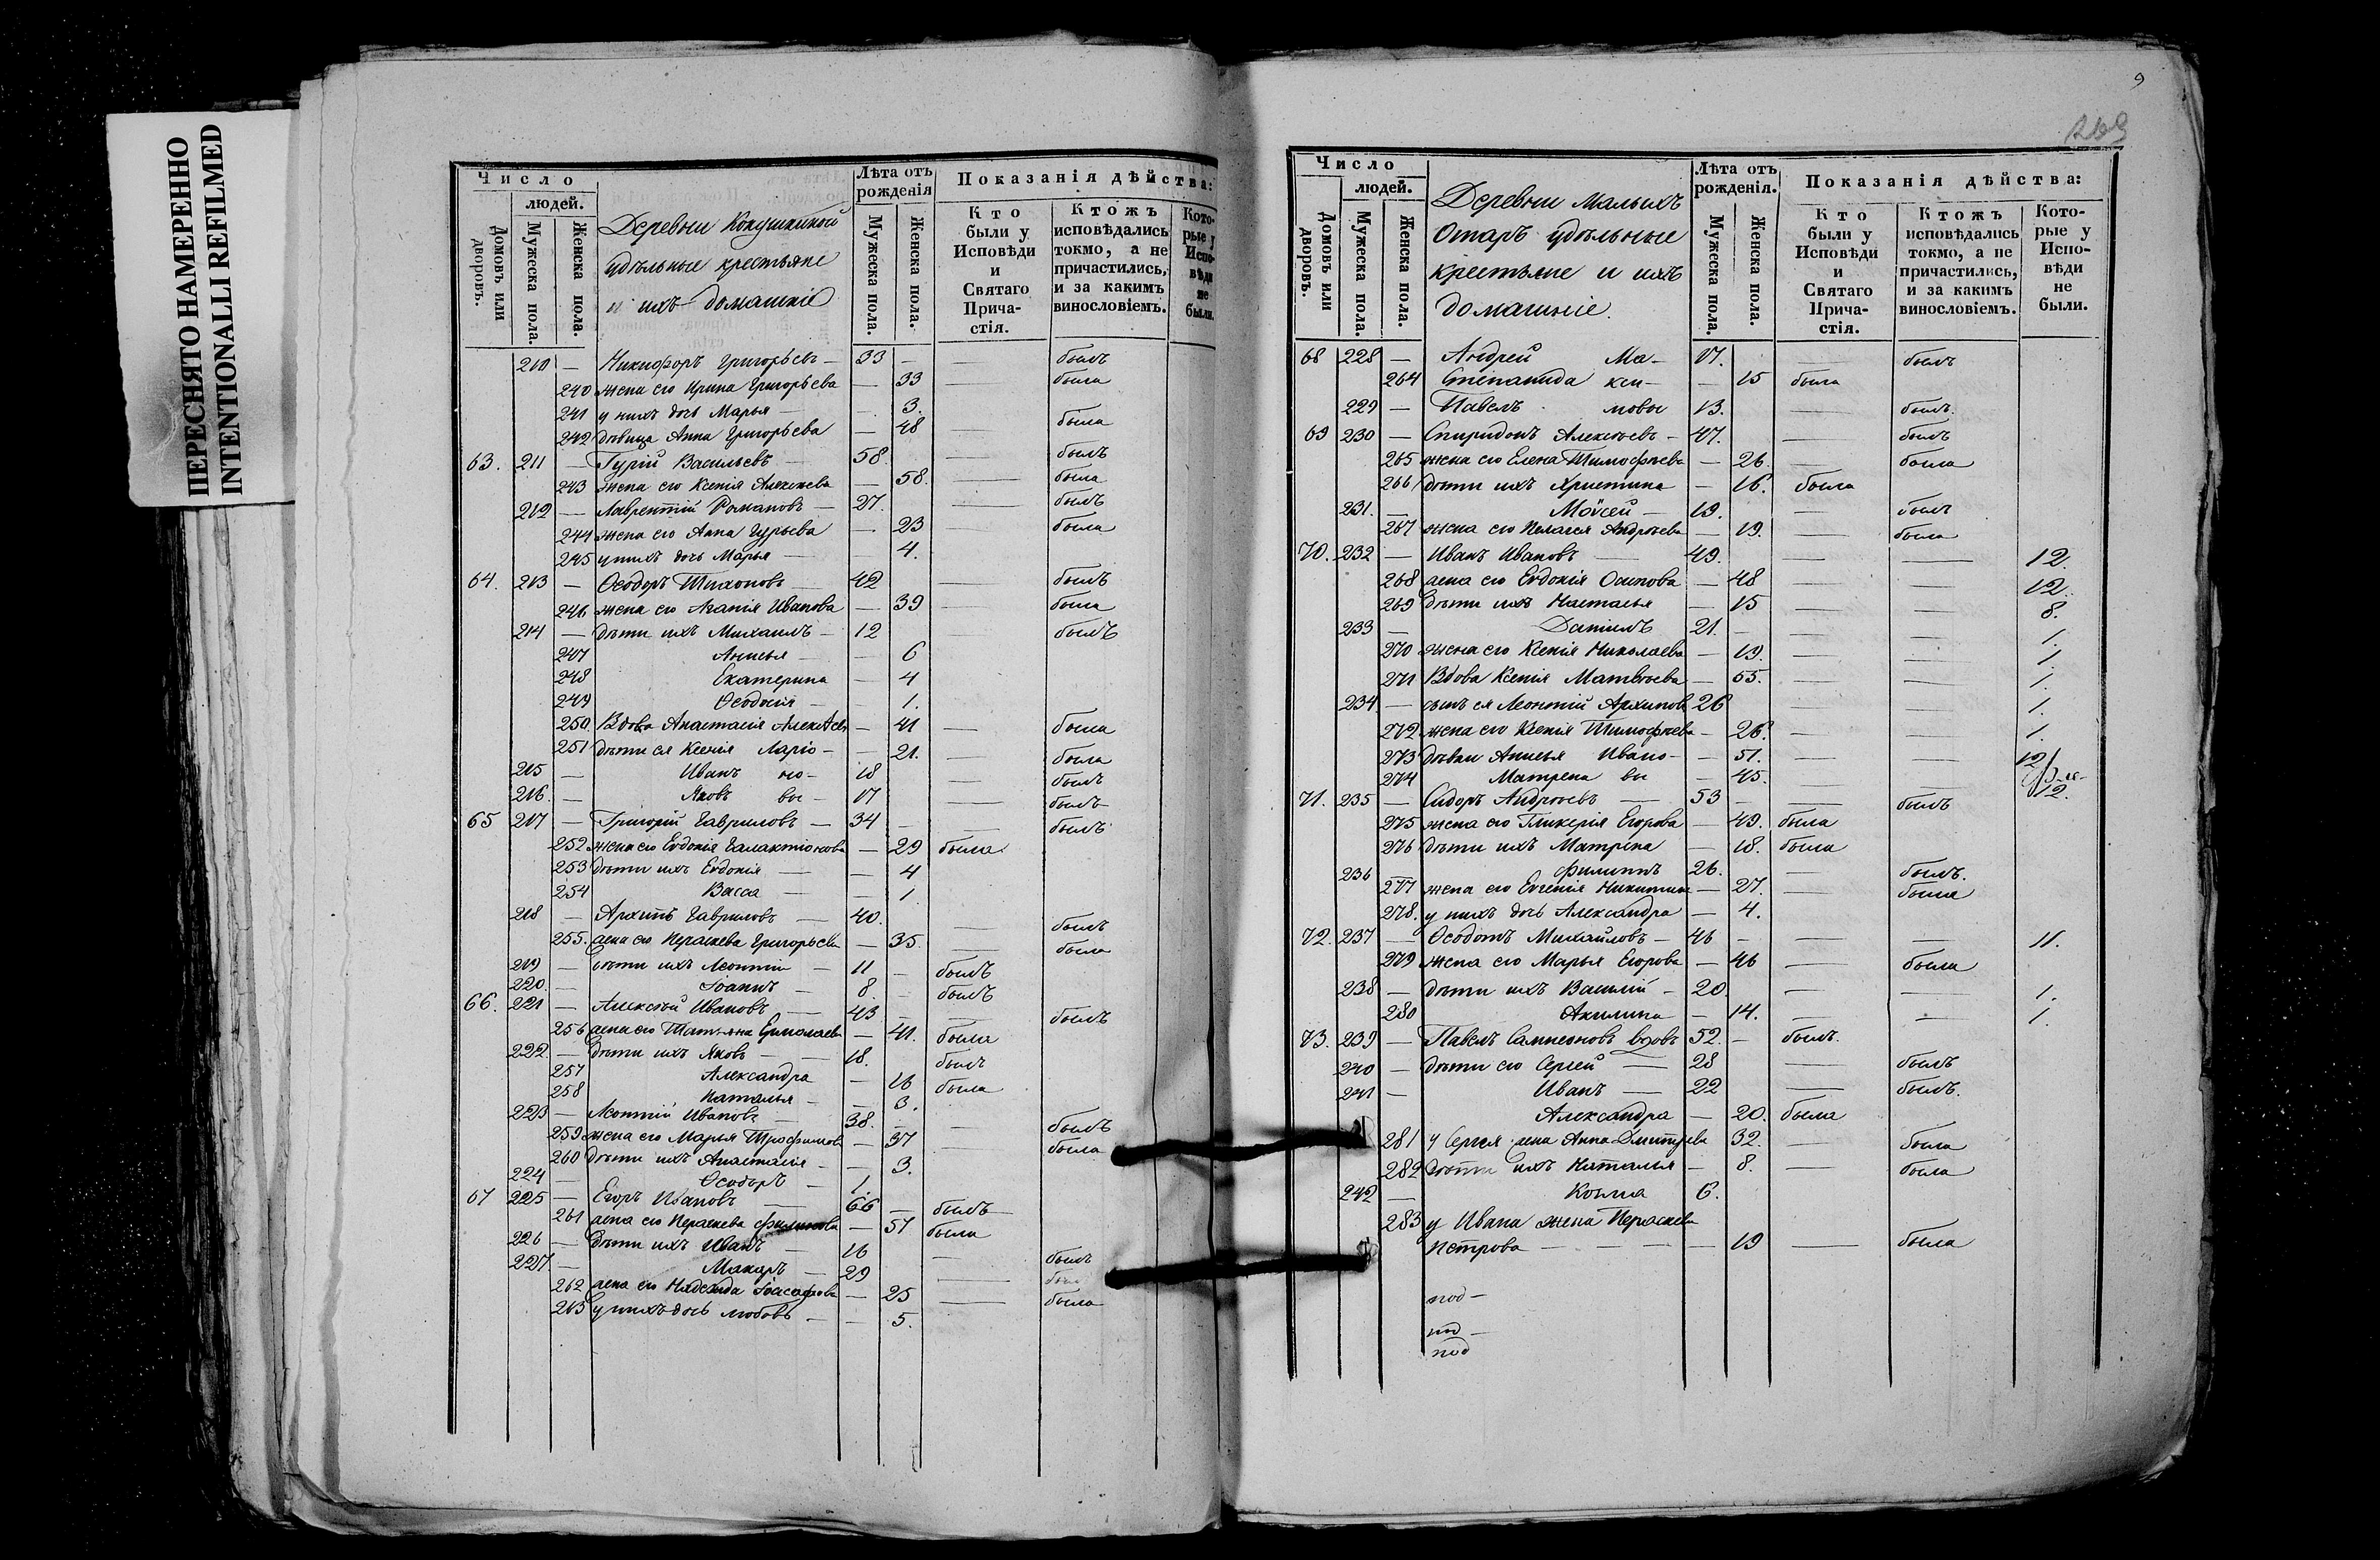 ПЕРЕСНЯТО НАМЕРЕННО
INTENTIONALLI REFILMED
Число
людей.
Домовъ или дворовъ.
Мужеска пола.
Женска пола.
Деревни Кокушкиной
удѣльные крестьяне
и ихъ домашніе
Лѣта отъ рожденія
Мужеска пола.
Женска пола.
Показанія дѣйства:
Кто были у Исповѣди и Святаго Прича-стія.
Ктожъ исповѣдались токмо, а не причастились, и за какимъ винословіемъ.
Кото-рые у Испо-вѣди не были.
210 — Никифоръ Григорьевъ — 33 — былъ
240 жена его Ирина Григорьева — 33 — была
241 у нихъ дочь Марья — 3.
242 дѣвица Анна Григорьева — 48 — была
63. 211 — Гурій Васильевъ 58. — былъ
243 жена его Ксенія Алексѣева — 58. — была
212 — Лаврентій Романовъ — 27. — былъ
244 жена его Анна Гурьева — 23 — была
245 у нихъ дочь Марья — 4.
64. 213 — Ѳеодоръ Тихоновъ 42 — былъ
246 жена его Агапія Иванова — 39 — была
214 — дѣти ихъ Михаилъ — 12 — былъ
247 Анисья — 6
248 Екатерина — 4
249 Ѳеодосія — 1.
250. Вдова Анастасія Алексѣев — 41 — была
251 дѣти ея Ксенія Ларіо- — 21. — была
215 — Иванъ но- 18 — былъ
216. — Яковъ вы — 17 — былъ
65 217 — Григорій Гавриловъ — 34 — былъ
252 жена его Евдокія Галактіонова — 29 была
253 дѣти ихъ Евдокія — 4
254 Васса — 1
218 — Архипъ Гавриловъ — 40. — былъ
255. жена его Параскева Григорьева — 35. — была
219 — дѣти ихъ Леонтій — 11 — былъ
220. — Іоаннъ — 8. — былъ
66. 221 — Алексѣй Ивановъ — 43 — былъ
256 жена его Татьяна Ермолаева — 41. была
222. — дѣти ихъ Яковъ — 18. былъ
257 Александра — 16 была
258 Наталья — 3.
223 — Леонтій Ивановъ — 38. — былъ
259 жена его Марья Трофимова — 37 — была
260 дѣти ихъ Анастасія — 3.
224 — Ѳеодоръ — 1.
67 225 — Егоръ Ивановъ 66 — былъ
261 жена его Параскева Филипова — 57 была
226 — дѣти ихъ Иванъ — 16 — былъ
227 — Макаръ — 29
262 жена его Надежда Іоасафова — 25 — была
263 у нихъ дочь Любовь — 5.
9
269
Число
людей.
Домовъ или дворовъ.
Мужеска пола.
Женска пола.
Деревни Малыхъ
Отаръ удѣльные
крестьяне и ихъ
домашніе.
Лѣта отъ рожденія.
Мужеска пола.
Женска пола.
Показанія дѣйства:
Кто были у Исповѣди и Святаго Прича-стія.
Ктожъ исповѣдались токмо, а не причастились, и за какимъ винословіемъ.
Кото-рые у Испо-вѣди не были.
68 228 — Андрей Ма- 17. — былъ
264 Степанида кси- — 15 была
229 — Павелъ мовы 13. — былъ.
69 230 — Спиридонъ Алексѣевъ — 47. — былъ
265 жена его Елена Тимофѣева — 26. — была
266 дѣти ихъ Христина — 16. была
231. — Мойсей — 19. — былъ
267 жена его Пелагея Андреева — 19. — была
70. 232 — Иванъ Ивановъ 49. — — 12.
268 жена его Евдокія Осипова — 48 — — 12.
269 дѣти ихъ Наталья — 15 — — 8.
233 — Даніилъ 21. — — 1.
270 жена его Ксенія Николаева — 19. — — 1
271 Вдова Ксенія Матвѣева — 55. — — 1.
234 — сынъ ея Леонтій Архипов 26 — 1.
272 жена его Ксенія Тимофѣева — 26. — — 1.
273 дѣвки Анисья Ивано- — 51. — —
274 Матрена вы — 45. — — 12.
71. 235 — Сидоръ Андреевъ — 53 — — былъ
275 жена его Гликерія Егорова — 49. была
276 дѣти ихъ Матрена — 18. была
236 Филиппъ 26. — былъ.
277 жена его Евгенія Никитина — 27. — была
278. у нихъ дочь Александра — 4.
72. 237 — Ѳеодотъ Михайловъ — 46 — — — 11.
279 жена его Марья Егорова — 46 — была
238 — дѣти ихъ Василій — 20. — — 1.
280 Акилина — 14. — — 1.
73. 239 — Павелъ Сампсоновъ вдовъ 52. — былъ.
240 — дѣти его Сергей — 28 былъ
241 — Иванъ — 22 — былъ.
Александра — 20. была
281 у Сергея жена Анна Дмитрева 32. — была
282 дѣти ихъ Наталья — 8. — была
242 — Козма 6.
283 у Ивана жена Параскева
Петрова — — — — 19 — была
под-
под